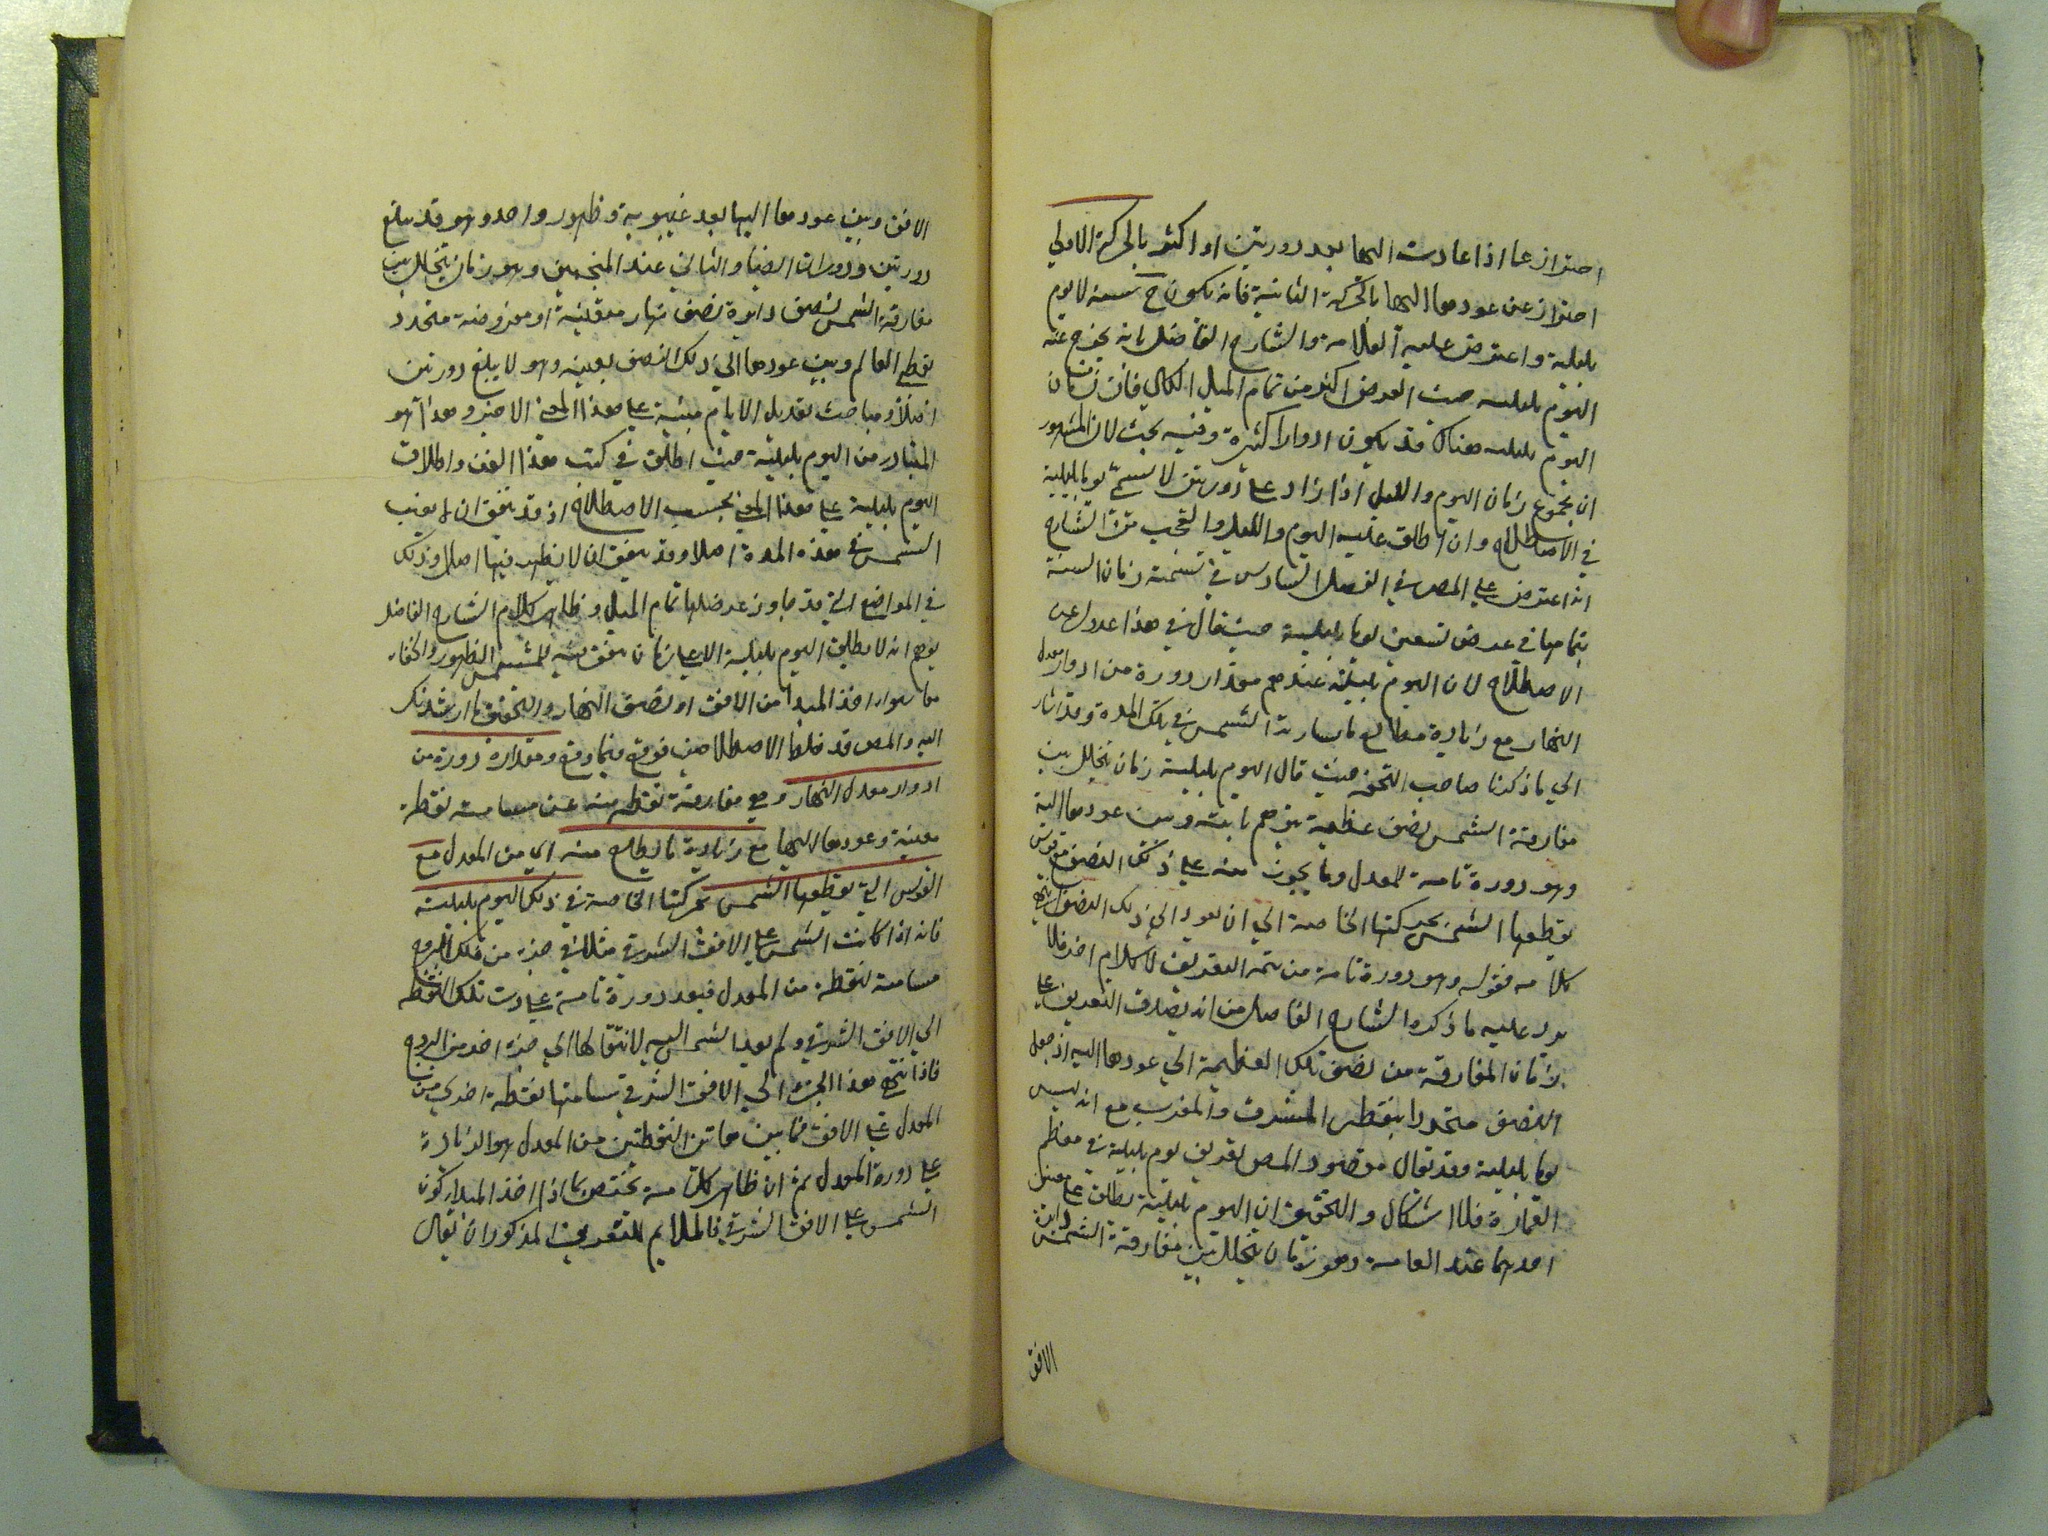 احتراز عما اذا عادت اليها بعد دورتين او اكثر بالحركة الاولي
احتراز عن عودها اليها بالحركة الثانية فانه يكون ح سنة لا يوم
بليلية واعترض عليه العلامة والشارح الفاضل بانه يخرج عنه
اليوم بليلته حيث العرض اكثر من تمام الميل الكلي فان زمان
اليوم بليلته هناك قد يكون ادوارا كثيرة وفيه بحث لان المشهور
ان مجموع زمان اليوم والليل اذا زاد على دورتين لا يسمي يوما بليلية
في الاصطلاح وان اطلق عليه اليوم والليل والعجب من الشارح
انه اعترض علي المص في الفصل السادس في تسمية زمان السنة
بتمامها في عرض تسعين يوما بليلية حيث قال في هذا عدول عن
الاصطلاح لان اليوم بليلته عندهم مقدار دورة من ادوار معدل
النهار مع زيادة مطالع ما سارته الشمس في تلك المدة وقد اشار
الي ما ذكرنا صاحب التحفة حيث قال اليوم بليلية زمان يتخلل بين
مفارقة الشمس نصف عظيمة يتوهم ثابتة وبين عودها اليه
وهو دورة تامة للمعدل وما يجوز منه علي ذلك النصف مع قوس
يقطعها الشمس بحركتها الخاصة الي ان يعود الي ذلك النصف انتهي
كلامه فقوله وهو دورة تامة من تتمة التعريف لا كلام اخر فلا
يرد عليه ما ذكره الشارح الفاضل من انه يصدق التعريف علي
زمان المفارقة من نصف تلك العظيمة الي عودها اليه اذ جعل
النصف متحددا بنقطي المشرق والمغرب مع انه ليس
يوما بليلية وقد يقال مقصود المص تعريف يوم بليلية في معظم
العمارة فلا اشكال والتحقيق ان اليوم بليلية يطلق علي معنيين
احدهما عند العامة وهو زمان يتخلل بين مفارقة الشمس دايرة
الافق
الافق وبين عودها اليها بعد غيبوبة وظهور واحد وهو قد يبلغ
دورتين ودورات ايضا والثاني عند المنجمين وهو زمان يتخلل بين
مفارقة الشمس نصف دايرة نصف نهار معينة او مفروضة متحدد
بقطبي العالم وبين عودها الي ذلك النصف بعينه وهو لا يبلغ دورتين
اصلا ومباحث تعديل الايام مبنية علي هذا المعني الاخير وهذا هو
المتبادر من اليوم بليلية حيث اطلق في كتب هذا الفن واطلاق
اليوم بليلية علي هذا المعني بحسب الاصطلاح اذ قد يتفق ان لا يغيب
الشمس في هذه المدة اصلا وقد يتفق ان لا يظهر فيها اصلا وذلك
في المواضع التي قد جاوز عرضها تمام الميل وظاهر كلام الشارح الفاضل
يوهم انه لا يطلق اليوم بليلية الا علي زمان يتفق فيه للشمس الظهور والخفاء
معا سواء اخذ المبدا من الافق او نصف النهار والتحقيق ما ارشدناك
اليه والمص قد خلط الاصطلاحين فوقع فيما وقع ومقداره دورة من
ادوار معدل النهار وهي مفارقة نقطة منه عن مسامتة نقطة
معينة وعودها اليها مع زيادة ما يطلع منه اي من المعدل مع
القوس التي يقطعها الشمس بحركتها الخاصة في ذلك اليوم بليلته
فانه اذا كانت الشمس علي الافق الشرقي مثلا في جزء من فلك البروج
مسامتة لنقطة من المعدل فبعد دورة تامة عادت تلك النقطة
الي الافق الشرقي ولم يعد الشمس اليه لانتقالها الي جزء اخر من البروج
فاذا انتهي هذا الجزء الي الافق الشرقي سامتها نقطة اخري من
المعدل علي الافق فما بين هاتين النقطتين من المعدل هو الزيادة
علي دورة المعدل ثم ان ظاهر كلامه يختص بما اذا اخذ المبدا كون
الشمس علي الافق الشرقي فالملايم للتعريف المذكور ان يقال